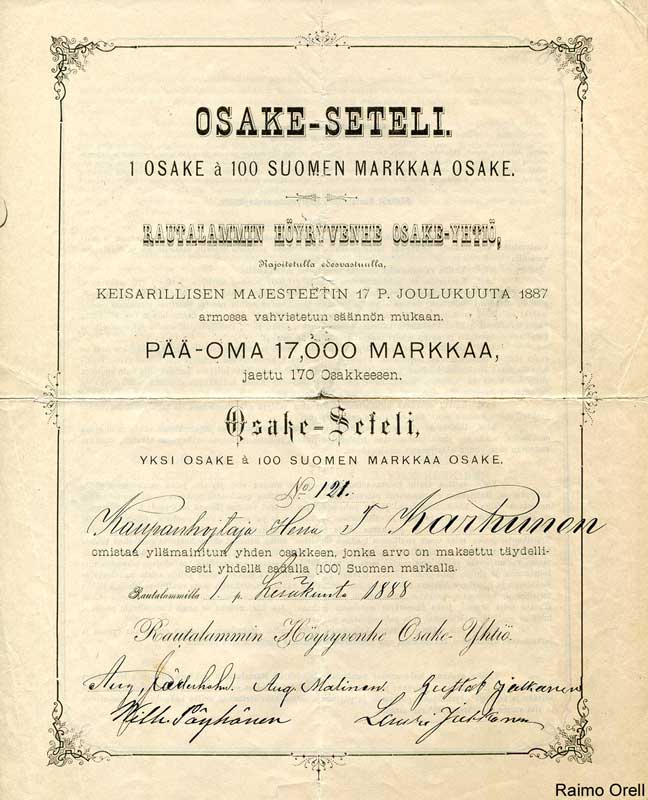 OSAKE-SETELI.
1 OSAKE à 100 SUOMEN MARKKAA OSAKE.
RAUTALAMMIN HÖYRYVENHE OSAKE-YHTIÖ,
Rajoitetulla edesvastuulla,
KEISARILLISEN MAJESTEETIN 17 P. JOULUKUUTA 1887
armossa vahvistetun säännön mukaan.
PÄÄ-OMA 17,000 MARKKAA,
jaettu 170 Osakkeesen.
Osake-Seteli,
YKSI OSAKE à 100 SUOMEN MARKKAA OSAKE.
No 121.
Kaupanhojtaja Herra T Karhunen
omistaa yllämainitun yhden osakkeen, jonka arvo on maksettu täydelli-
sesti yhdellä sadalla (100) Suomen markalla.
Rautalammilla 1 p. Kesäkuuta 1888
Rautalammin Höyryvenhe Osake-Yhtiö.
Aug. Aug. Malinen. Gustaf Jalkanen
Wilh. Pöyhönen
Raimo Orell